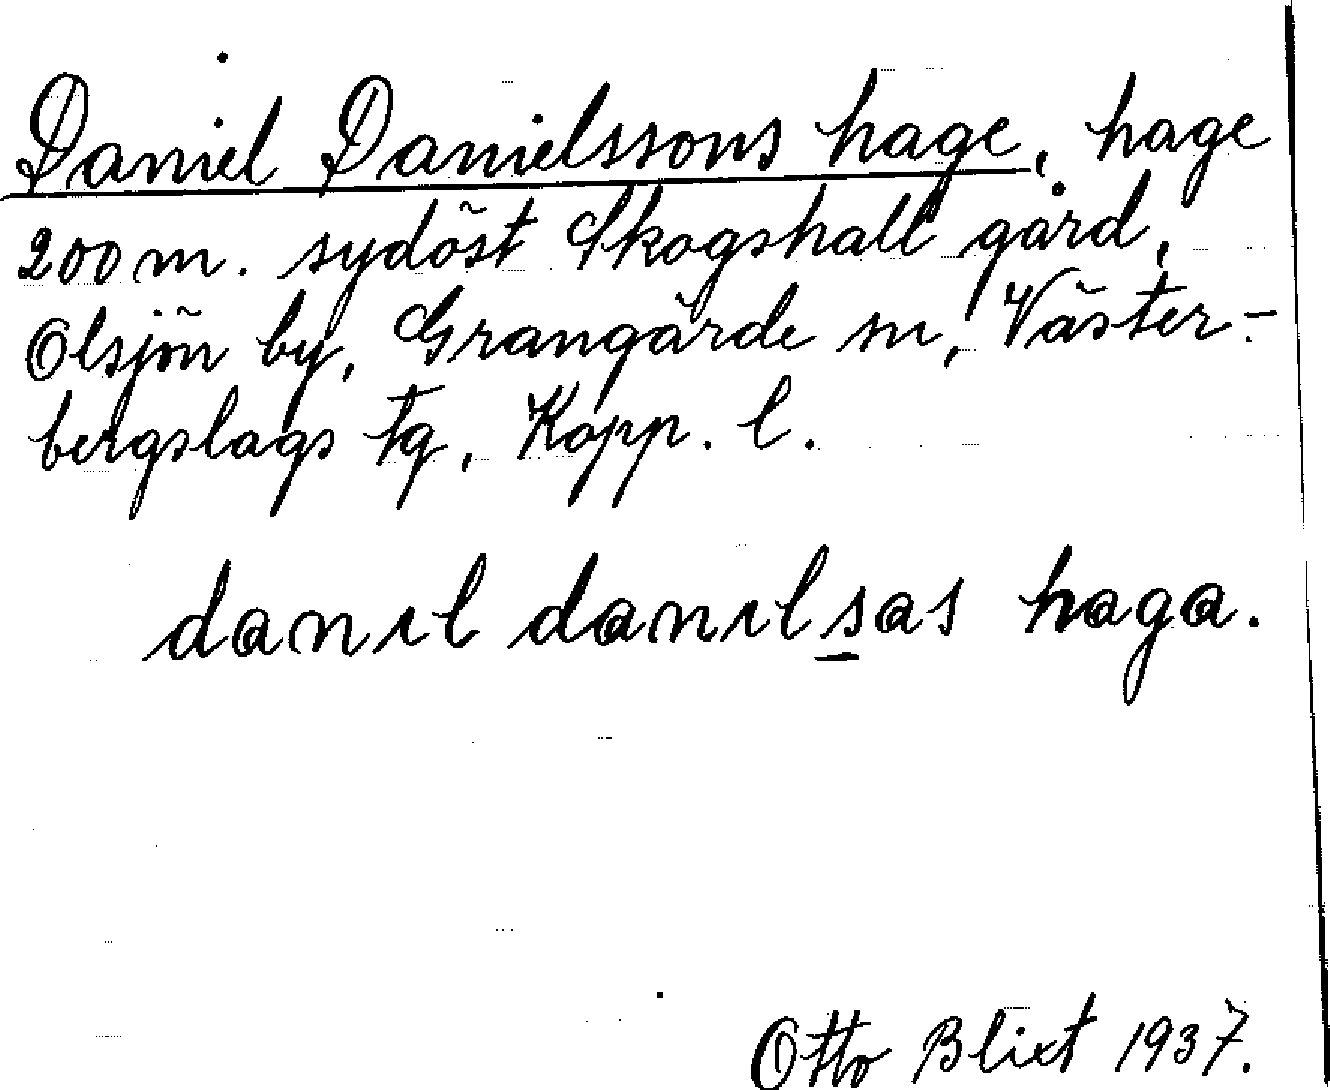 Daniel Danielssons hage, hage
200 m. sydöst Skogshall gård,
Olsjön by, Grangärde sn, Väster-
bergslags tg, Kopp. l.
danɩl danɩlsas haga.
Otto Blixt 1937.